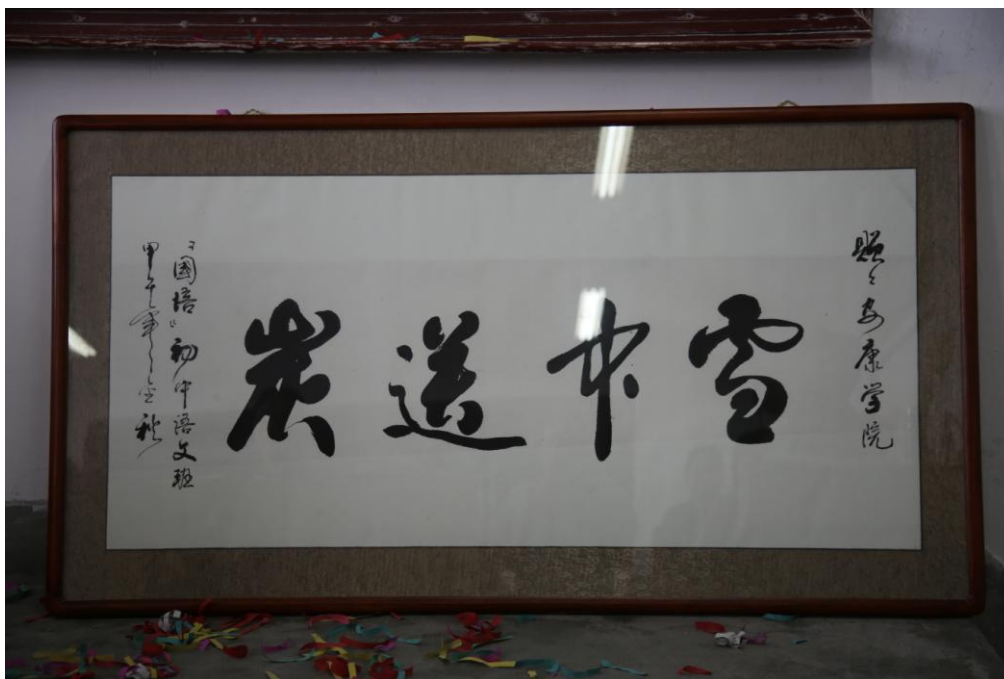 赠：安康学院
雪中送炭
『國培』初中语文班
甲午年之金秋